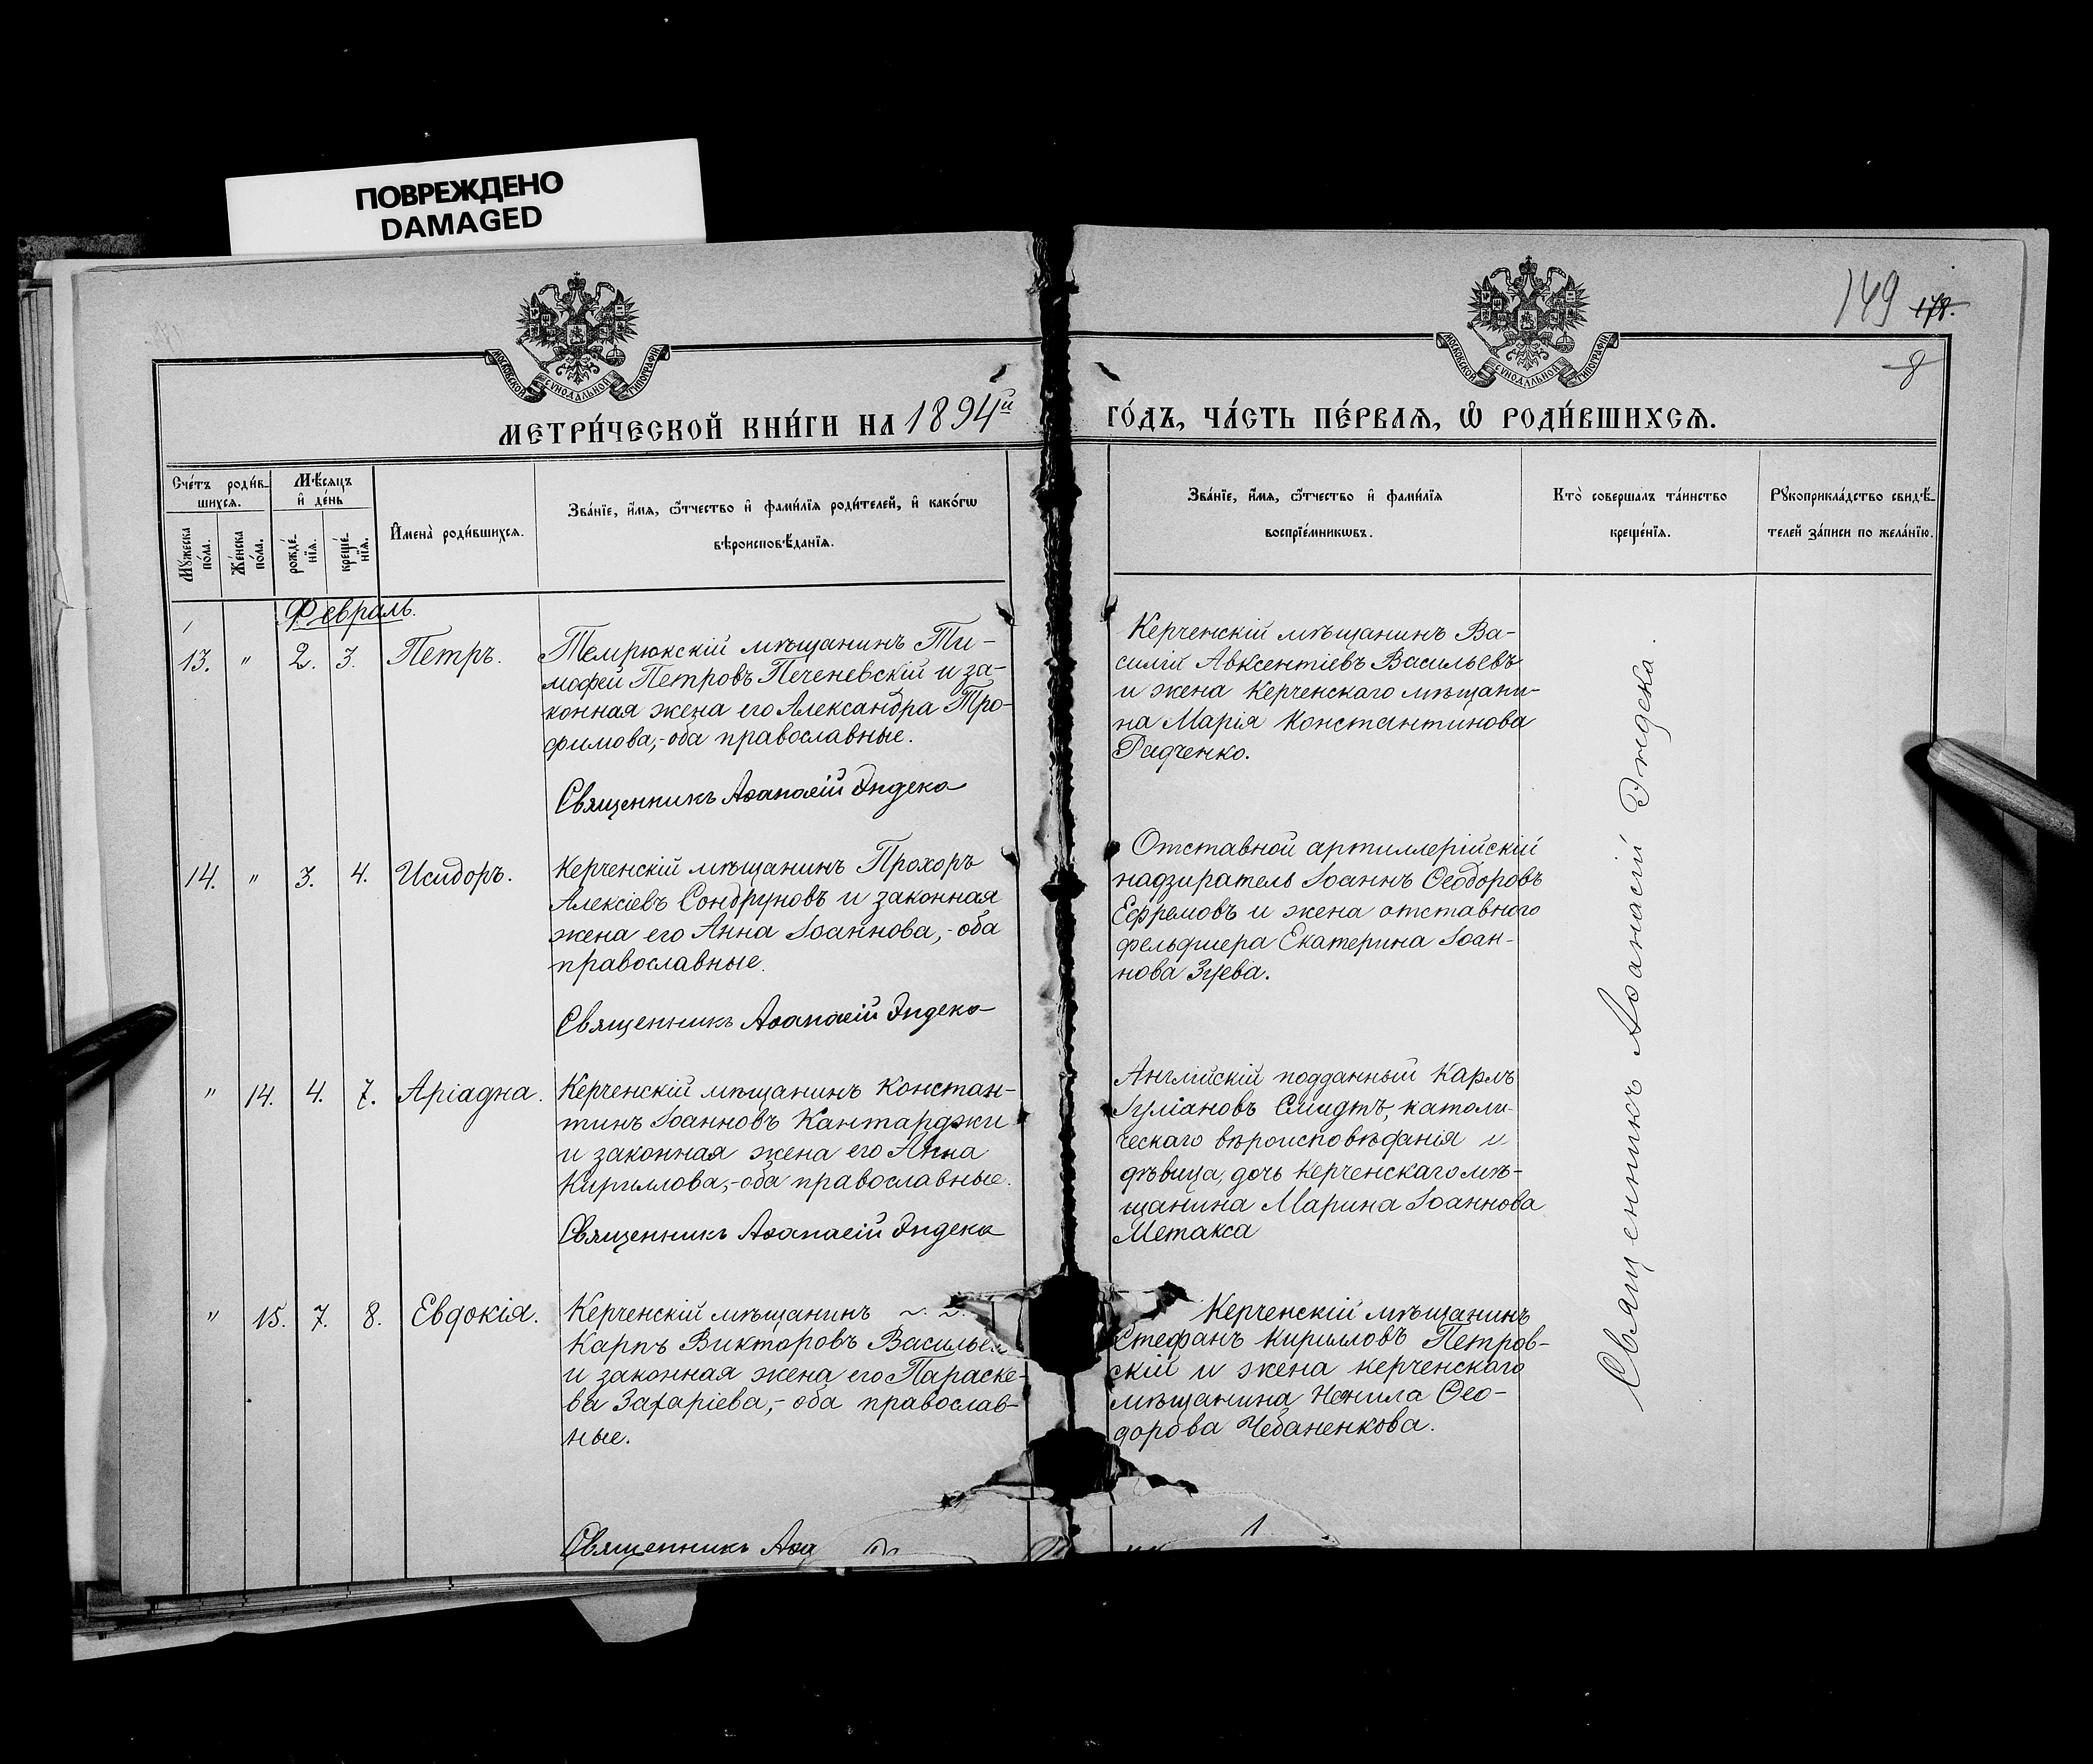 ПОВРЕЖДЕНО
DAMAGED
149 178.
8
МОСКОВСКОЙ СѴНОДАЛЬНОЙ ТИПОГРАФІИ
МОСКОВСКОЙ СѴНОДАЛЬНОЙ ТИПОГРАФІИ
МЕТРИ́ЧЕСКОЙ КНИ́ГИ НА 1894й
ГО́ДЪ, ЧА́СТЬ ПЕ́РВАѦ, Ѡ҆ РОДИ́ВШИХСѦ.
Сче́тъ роди́в-
шихсѧ.
Мꙋжеска по́ла.
Же́нска по́ла.
Мѣ́сѧцъ
и҆ де́нь
рожде́-
нїѧ.
креще́-
нїѧ.
И҆мена̀ роди́вшихсѧ.
Зва́нїе, и҆́мѧ, ѻ҆́тчество и҆ фами́лїѧ роди́телей, и҆ како́гѡ
вѣроисповѣ́данїѧ.
Зва́нїе, и҆́мѧ, ѻ҆́тчество и҆ фами́лїѧ
воспрїе́мникѡвъ.
Кто̀ соверша́лъ та́инство
креще́нїѧ.
Рꙋкоприкла́дство свидѣ́-
телей за́писи по жела́нїю.
Февраль.
13. " 2. 3. Петръ.
Темрюкскій мѣщанинъ Ти-
мофей Петровъ Печеневскій и за-
конная жена его Александра Тро-
фимова,-оба православные.
Священникъ Аѳанасій Эндека
Керченскій мѣщанинъ Ва-
силій Авксентіевъ Васильевъ
и жена Керченскаго мѣщани-
на Марія Константинова
Радченко.
14. " 3. 4. Исидоръ.
Керченскій мѣщанинъ Прохоръ
Алексіевъ Сондруновъ и законная
жена его Анна Іоаннова,-оба
православные.
Священникъ Аѳанасій Эндека
Отставной артиллерійскій
надзиратель Іоаннъ Ѳеодоровъ
Ефремовъ и жена отставного
фельдшера Екатерина Іоан-
нова Зуева.
" 14. 4. 7. Аріадна.
Керченскій мѣщанинъ Констан-
тинъ Іоанновъ Кантарджи
и законная жена его Анна
Кириллова,-оба православные.
Священникъ Аѳанасій Эндека
Англійскій подданный Карлъ
Іуліановъ Смидтъ, католи-
ческаго вѣроисповѣданія и
дѣвица, дочь Керченскаго мѣ-
щанина Марина Іоаннова
Метакса
" 15. 7. 8. Евдокія.
Керченскій мѣщанинъ
Карпъ Викторовъ Василье
и законная жена его Параске-
ва Захаріева,-оба православ-
ные.
Священникъ Аѳа
Керченскій мѣщанинъ
Стефанъ Кирилловъ Петров-
скій и жена керченскаго
мѣщанина Ненила Ѳео-
дорова Чебаненкова.
Священникъ Аѳанасій Эндека.